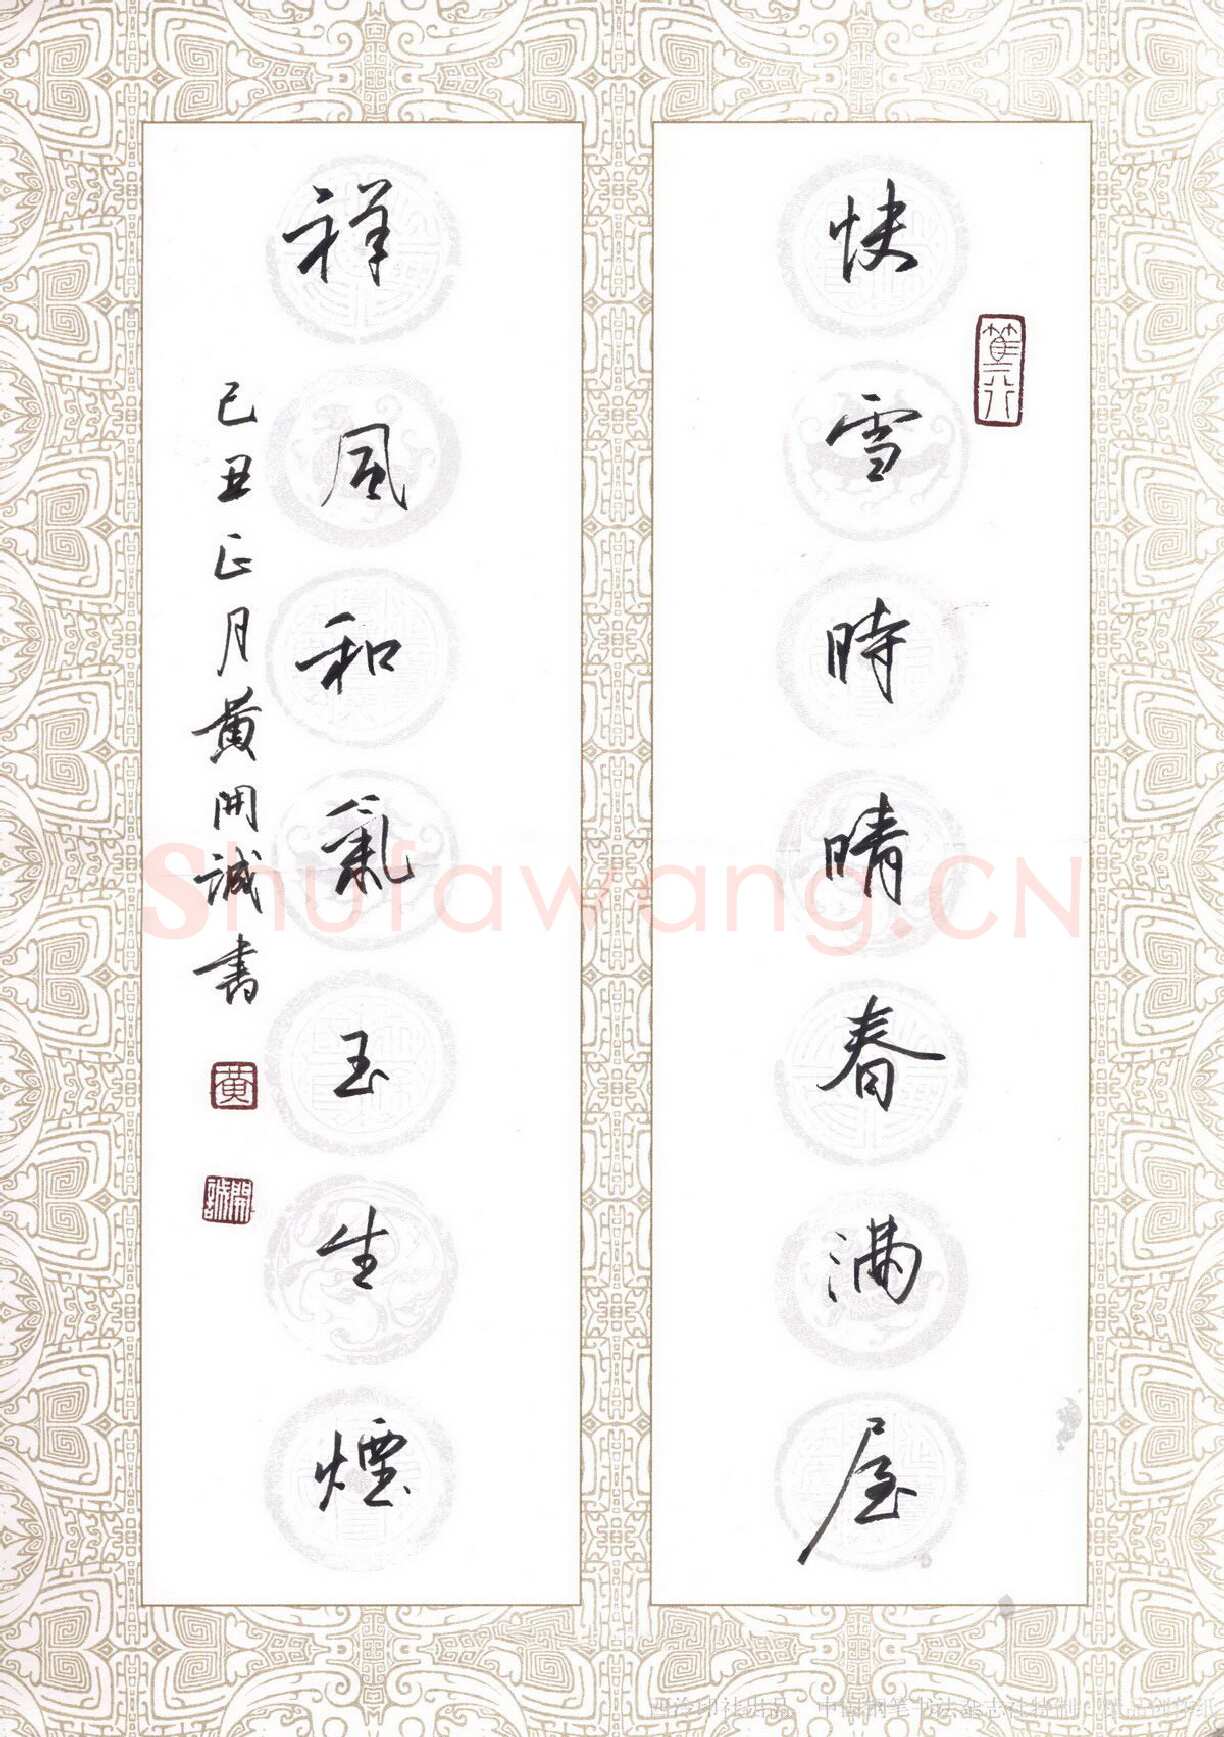 快雪時晴春满屋
篤行
祥風和氣玉生煙
己丑正月黄開誠書
黄
開誠
Shufawang.CN